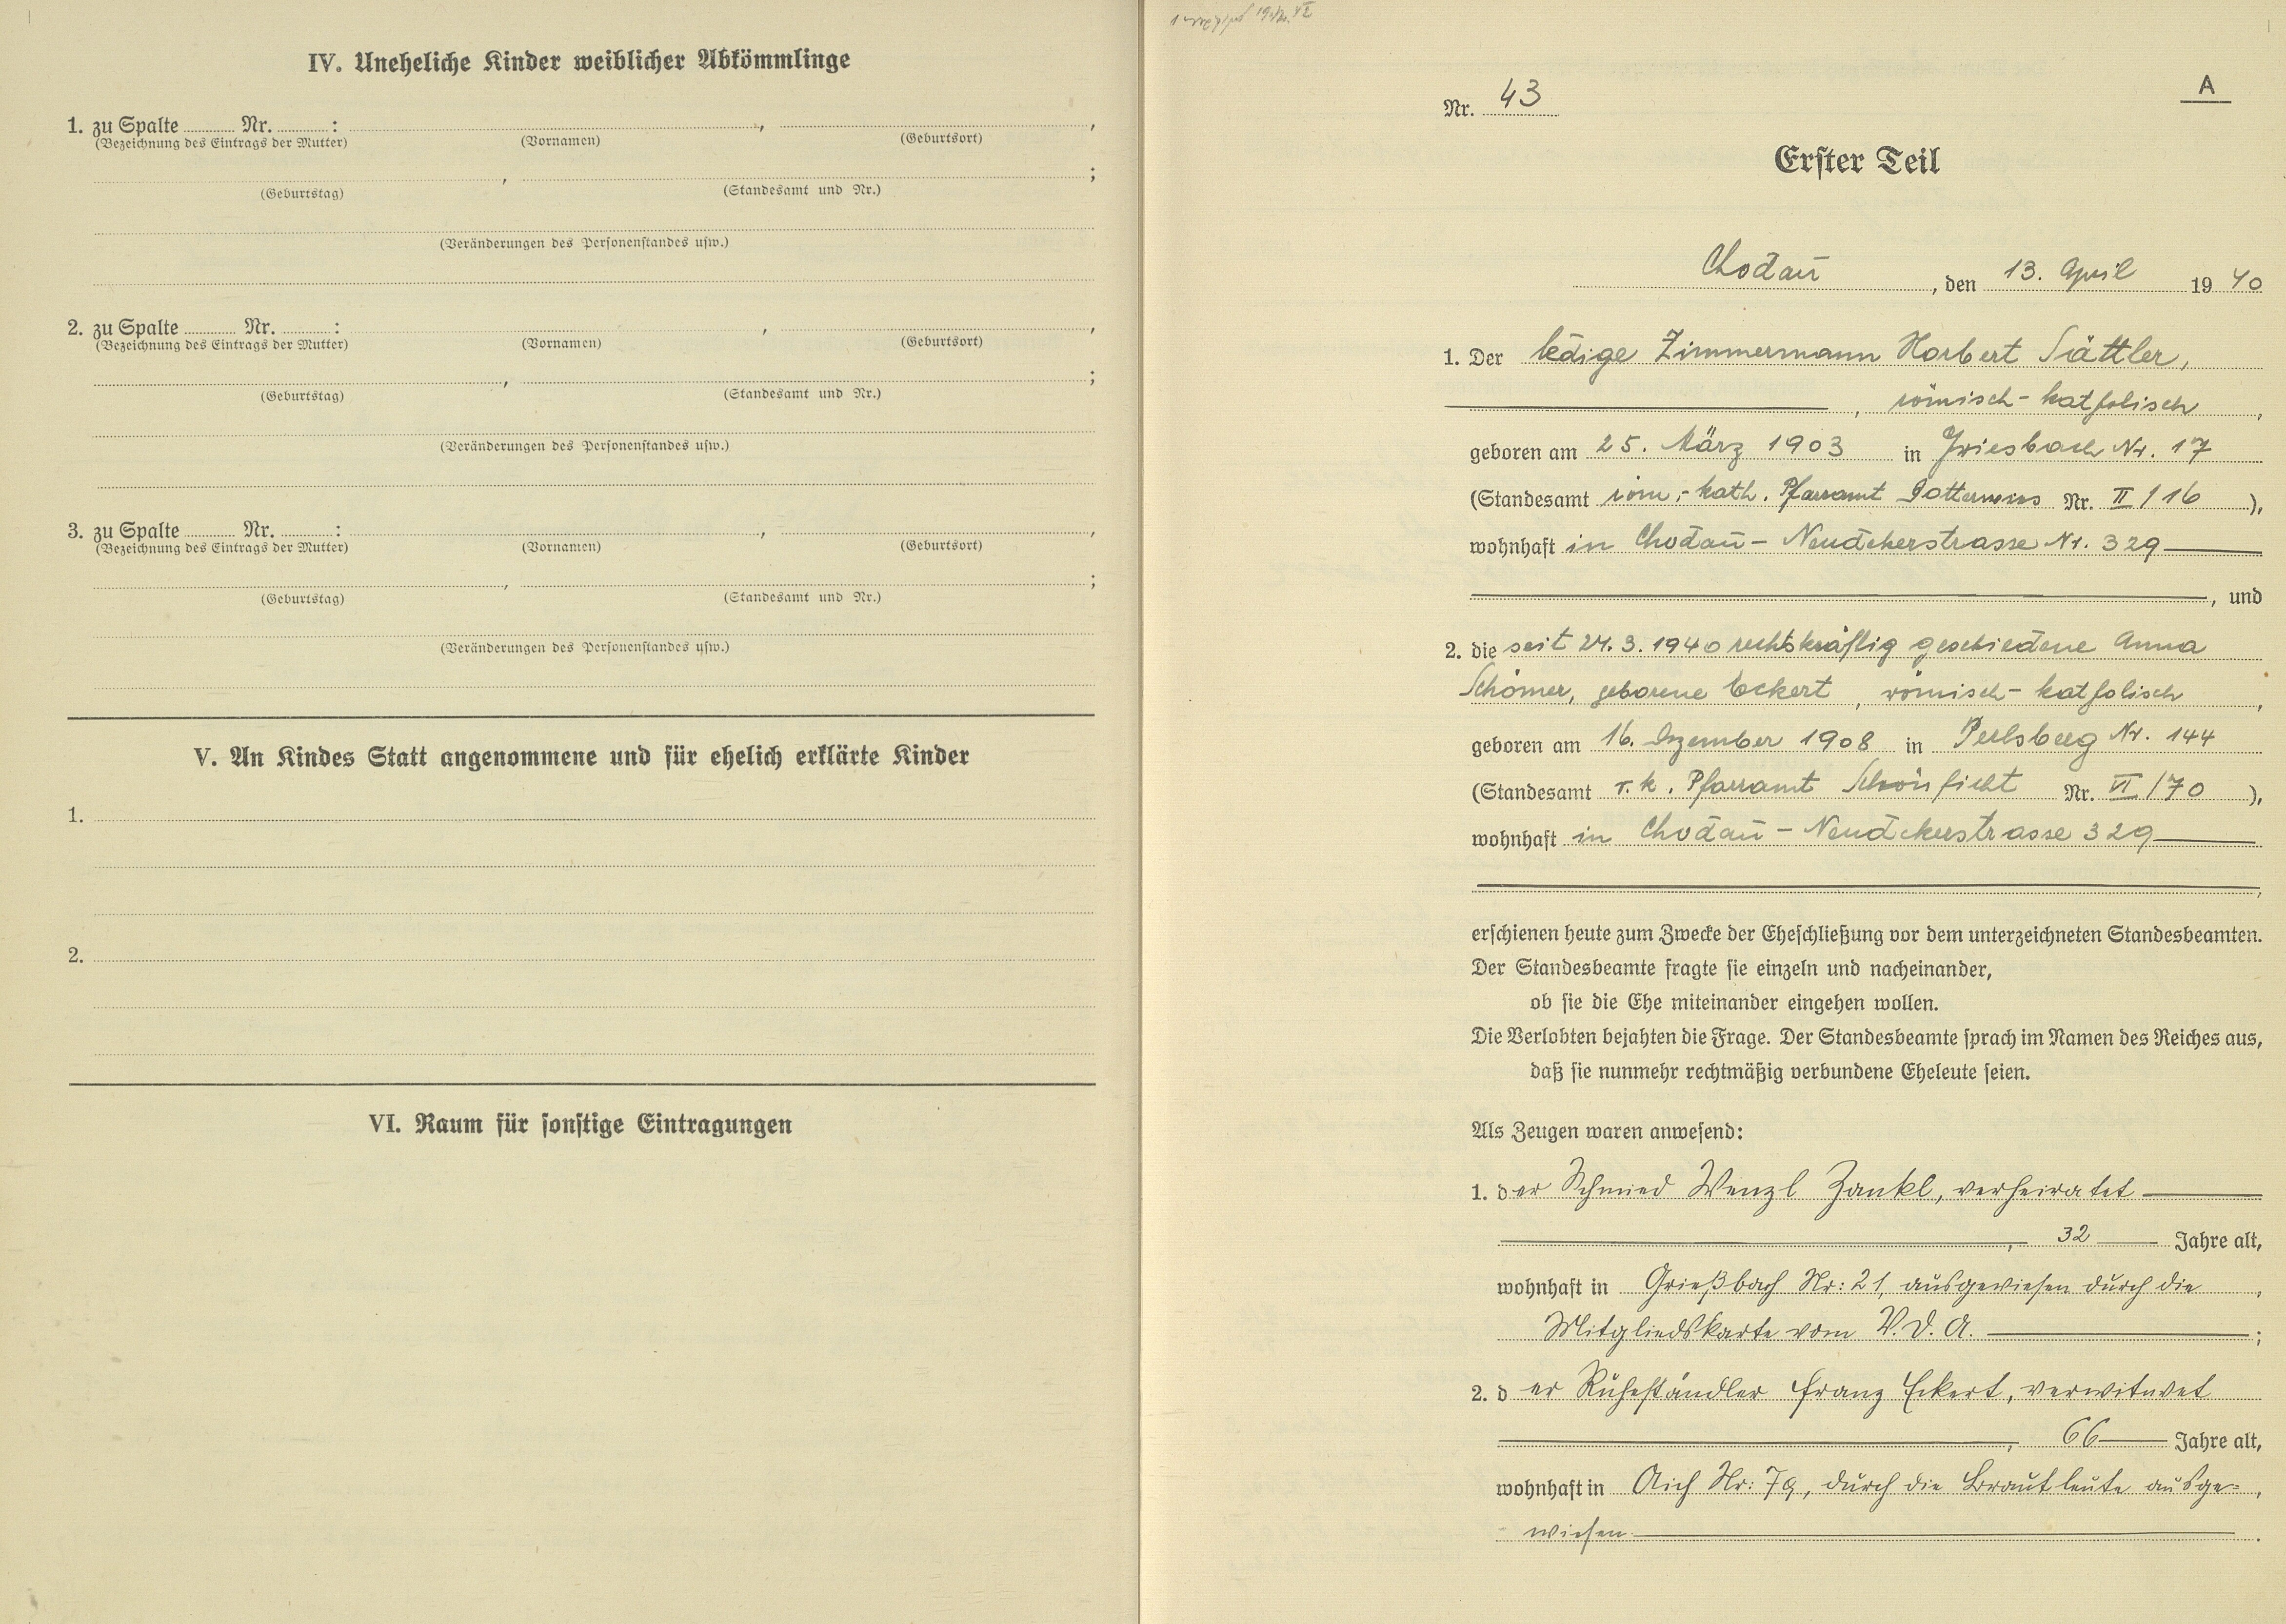 IV. Uneheliche Kinder weiblicher Abkömmlinge
1. zu Spalte ........ Nr. ........ : , ,
(Bezeichnung des Eintrags der Mutter) (Vornamen) (Geburtsort)
, ;
(Geburtstag) (Standesamt und Nr.)
(Veränderungen des Personenstandes usw.)
2. zu Spalte ........ Nr. ........ : , ,
(Bezeichnung des Eintrags der Mutter) (Vornamen) (Geburtsort)
, ;
(Geburtstag) (Standesamt und Nr.)
(Veränderungen des Personenstandes usw.)
3. zu Spalte ........ Nr. ........ : , ,
(Bezeichnung des Eintrags der Mutter) (Vornamen) (Geburtsort)
, ;
(Geburtstag) (Standesamt und Nr.)
(Veränderungen des Personenstandes usw.)
V. An Kindes Statt angenommene und für ehelich erklärte Kinder
1.
2.
VI. Raum für sonstige Eintragungen
A
Nr. 43
Erster Teil
Chodau, den 13. April 1940
1. Der ledige Zimmermann Norbert Sättler,
, römisch-katholisch,
geboren am 25. März 1903 in Griesbach Nr. 17
(Standesamt röm.-kath. Pfarramt Nr. II/16),
wohnhaft in Chodau - Neudekerstrasse Nr. 329
, und
2. die seit 27.3.1940 rechtskräftig geschiedene Anna
Schömer, geborene Eckert, römisch-katholisch,
geboren am 16. Dezember 1908 in Perlsberg Nr. 144
(Standesamt r.k. Pfarramt Schönficht Nr. VI/70),
wohnhaft in Chodau - Neudekerstrasse 329
,
erschienen heute zum Zwecke der Eheschließung vor dem unterzeichneten Standesbeamten.
Der Standesbeamte fragte sie einzeln und nacheinander,
ob sie die Ehe miteinander eingehen wollen.
Die Verlobten bejahten die Frage. Der Standesbeamte sprach im Namen des Reiches aus,
daß sie nunmehr rechtmäßig verbundene Eheleute seien.
Als Zeugen waren anwesend:
1. der Schmied Wenzl Zankl, verheiratet
, 32 Jahre alt,
wohnhaft in Grießbach Nr: 21, ausgewiesen durch die,
Mitgliedskarte vom V.D.A. ;
2. der Ruheständler Franz Eckert, verwitwet
, 66 Jahre alt,
wohnhaft in Aich Nr: 79, durch die Brautleute ausge-,
wiesen.